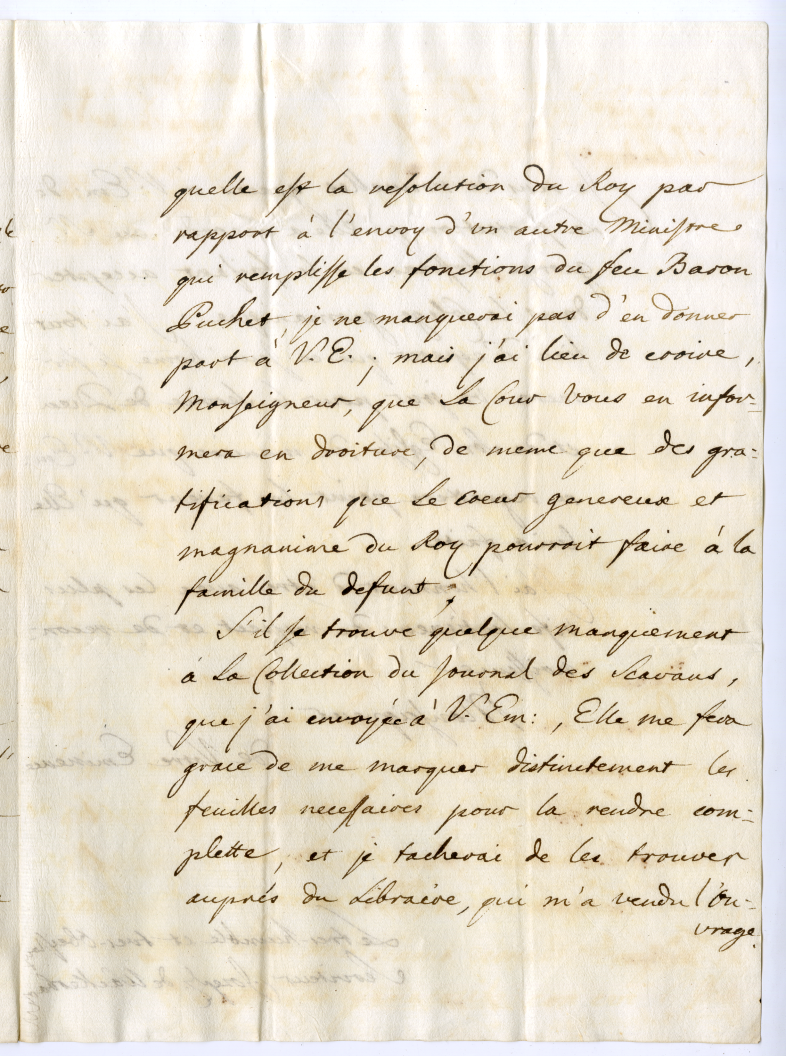 quelle est la resolution du Roy par
rapport à l'envoy d'un autre Ministre
qui remplisse les fonctions du feu Baron
Puchet, je ne manquerai pas d'en donner
part à V. E.; mais j'ai lieu de croire,
Monseigneur, que La Cour Vous en infor-
mera en droiture, de meme que des gra=
tifications que Le coeur genereux et
magnanime du Roy pourroit faire à la
famille du defunt;
S'il se trouve quelque manquement
à La Collection du Journal des Scavans,
que j'ai envoyée à V. Em:, Elle me fera
grace de me marquer distinctement les
feuilles necessaires pour la rendre com=
plette, et je tacherai de les trouver
auprés du Libraire, qui m'a vendu l'ou-
vrage.